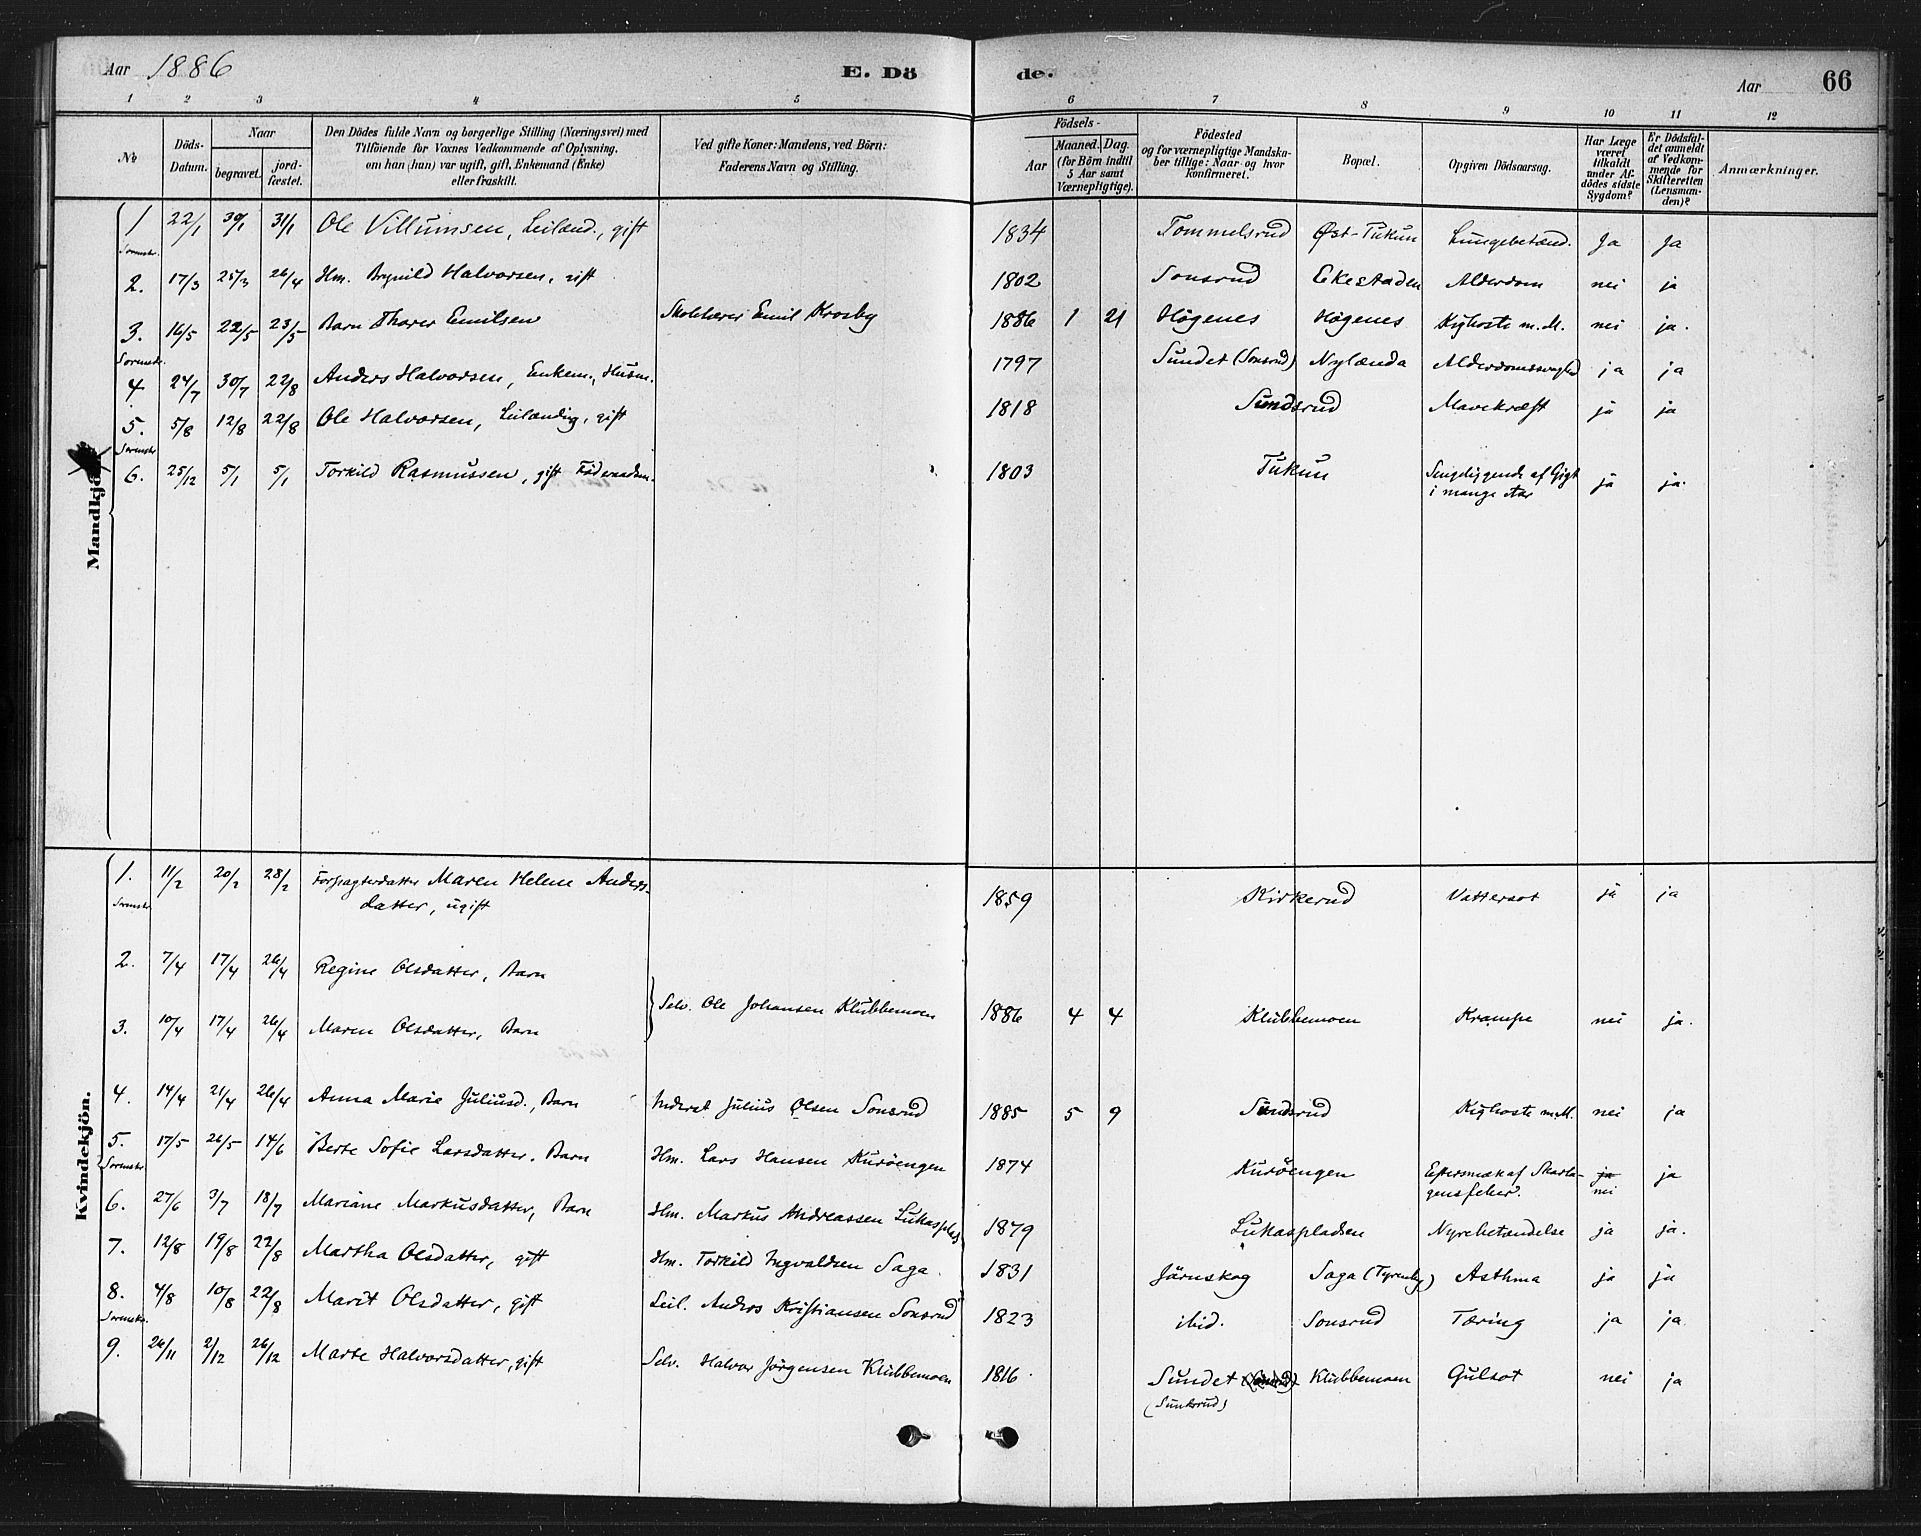 Aar 1886 E. Dö de. Aar 66
1 2 3 4 5 6 7 8 9 10 11 12
No
Döds-Datum.
Naar
begravet.
jordfæstet.
Den Dödes fulde Navn og borgerlige Stilling (Næringsvei) med
Tilföiende for Voxnes Vedkommende af Oplysning,
om han (hun) var ugift, gift, Enkemand (Enke)
eller fraskilt.
Ved gifte Koner: Mandens, ved Börn:
Faderens Navn og Stilling.
Födsels-
Aar
Maaned. Dag.
(for Börn indtil
5 Aar samt
Værnepligtige).
Födested
og for værnepligtige Mandska-
ber tillige: Naar og hvor
konfirmeret.
Bopæl.
Opgiven Dödsaarsag.
Har Læge
været
tilkaldt
under Af-
dödes sidste
Sygdom?
Er Dödsfal-
det anmeldt
af Vedkom-
mende for
Skifteretten
(Lensman-
den)?
Anmærkninger.
Mandkjön.
1 22/1 30/1 31/1 Ole Villumsen, Leilænd., gift 1834 Tommelsrud Øst-Tukun Lungebetænd. Ja Ja
2. 17/3 25/3 26/4 Hm. Brynild Halvorsen, gift 1802 Sonsrud Ekestaden Alderdom nei ja
3. 16/5 22/5 23/5 Barn Thorer Emilsen Skolelærer Emil Krosby 1886 1 21 Högenes Högenes Kighoste m.M. nei ja.
4 24/7 30/7 22/8 Anders Halvorsen, Enkem., Husm. 1797 Sundet (Sonsrud) Nylænda Alderdomssvaghed ja ja
5. 5/8 12/8 22/8 Ole Halvorsen, Leilændig, gift 1818 Sundsrud Mavekræft ja ja
6. 25/12 5/1 5/1 Torkild Rasmussen, gift Föderaadsm. 1803 Tukun Sengeliggende af Gigt
i mange Aar ja ja.
Kvindekjön.
1. 11/2 20/2 28/2 Forpagterdatter Maren Helene Anders-
datter, ugift 1859 Kirkerud Vattersot ja ja
2. 7/4 17/4 26/4 Regine Olsdatter, Barn
Selv. Ole Johansen Klubbemoen
3. 10/4 17/4 26/4 Maren Olsdatter, Barn 1886 4 4 Klubbemoen Krampe nei ja.
4. 14/4 21/4 26/4 Anna Marie Juliusd., Barn Inderst Julius Olsen Sonsrud 1885 5 9 Sundsrud Kighoste m.M. nei ja
5. 17/5 26/5 14/6 Berte Sofie Larsdatter. Barn Hm. Lars Hansen Kuröengen 1874 Kuröengen Eftersmæk af Skarla-
gensfeber. ja nei ja
6. 27/6 3/7 18/7 Mariane Markusdatter, Barn Hm. Markus Andreassen Lukasplads 1879 Lukaspladsen Nyrebetændelse ja ja.
7. 12/8 19/8 22/8 Martha Olsdatter, gift Hm. Torkild Ingvaldsen Saga. 1831 Järnskog Saga (Tyrenby) Asthma ja ja
8. 4/8 10/8 22/8 Marit Olsdatter, gift Leil. Andros Kristiansen Sonsrud 1823 ibid. Sonsrud Tæring ja ja
9. 26/11 2/12 26/12 Marte Halvorsdatter, gift Selv. Halvor Jörgensen Klubbemoen 1816 Sundet Klubbemoen Gulsot nei ja
(Sundsrud)